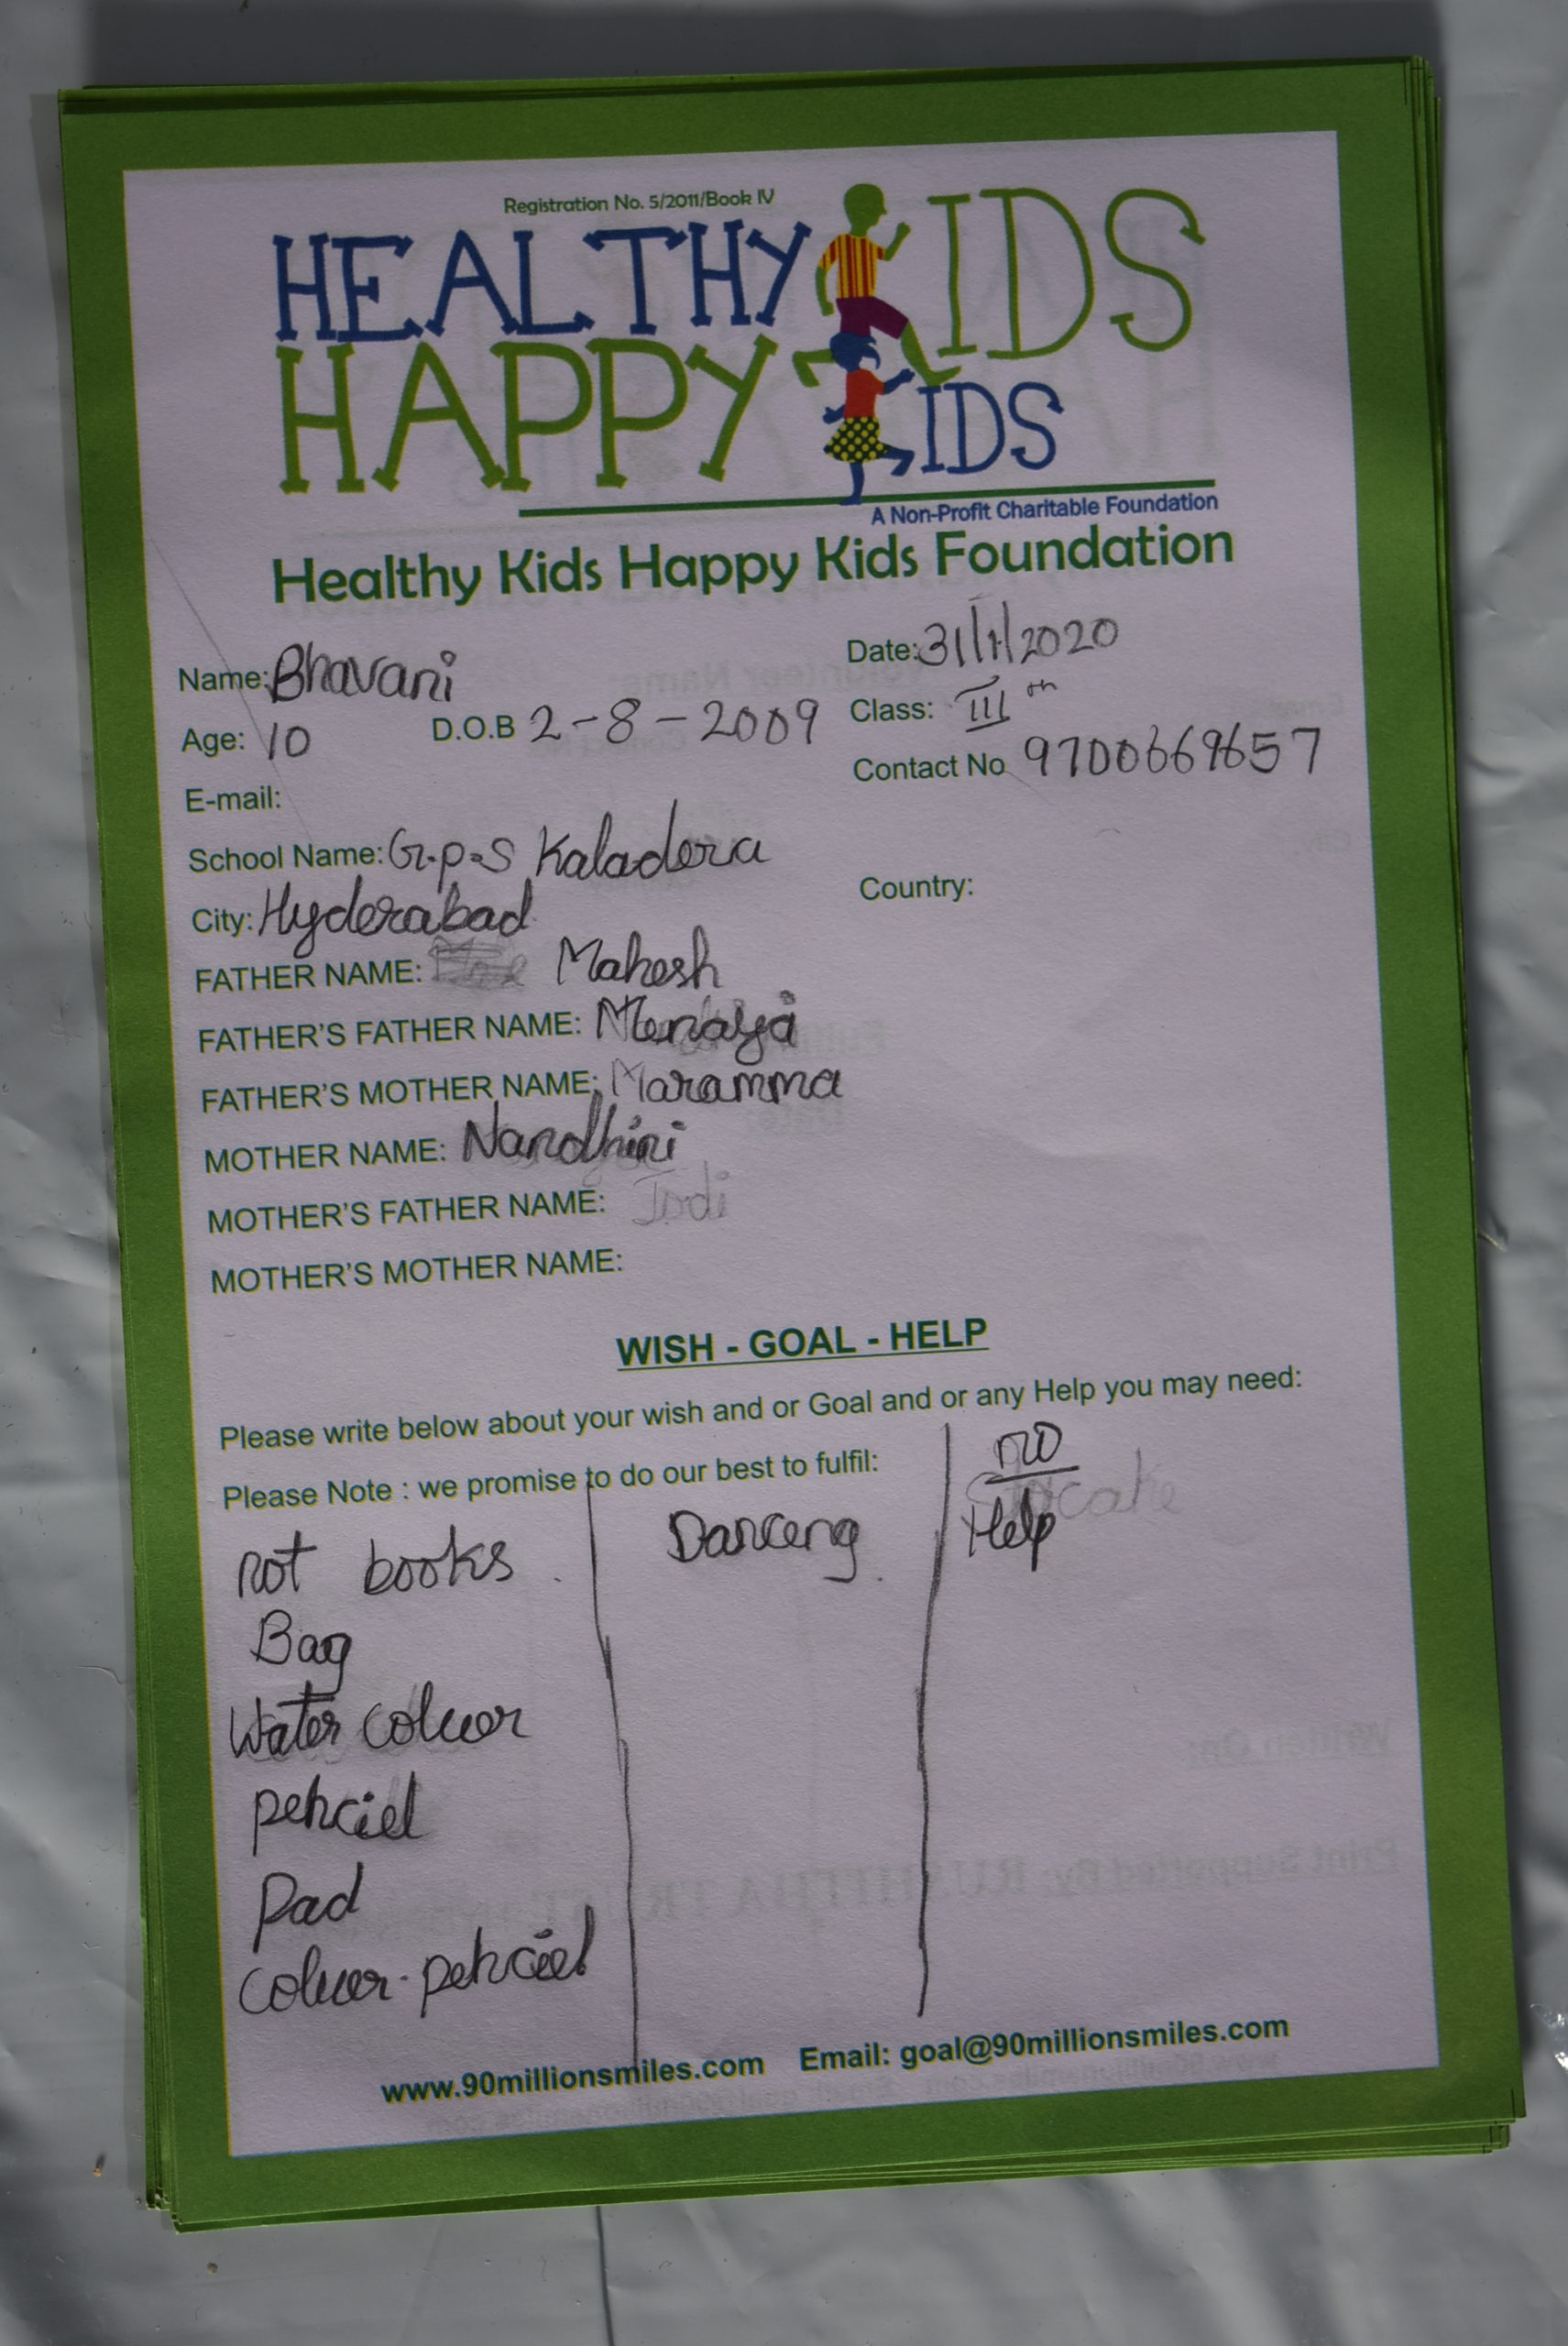 Registration No. 5/2011/Book IV
HEALTHY KIDS
HAPPY KIDS
A Non-Profit Charitable Foundation
Healthy Kids Happy Kids Foundation
Name: Bhavani Date: 31/1/2020
Age: 10 D.O.B 2-8-2009 Class: III th
E-mail: Contact No 9700669657
School Name: G.p.S Kaladera
City: Hyderabad Country:
FATHER NAME: Mahesh
FATHER'S FATHER NAME:
FATHER'S MOTHER NAME: Maramma
MOTHER NAME: Nandhini
MOTHER'S FATHER NAME:
MOTHER'S MOTHER NAME:
WISH - GOAL - HELP
Please write below about your wish and or Goal and or any Help you may need:
Please Note : we promise to do our best to fulfil:
not books.
Bag
Water coluor
penciel
Pad
coluor-penciel
Danceng.
no
Help
www.90millionsmiles.com Email: goal@90millionsmiles.com